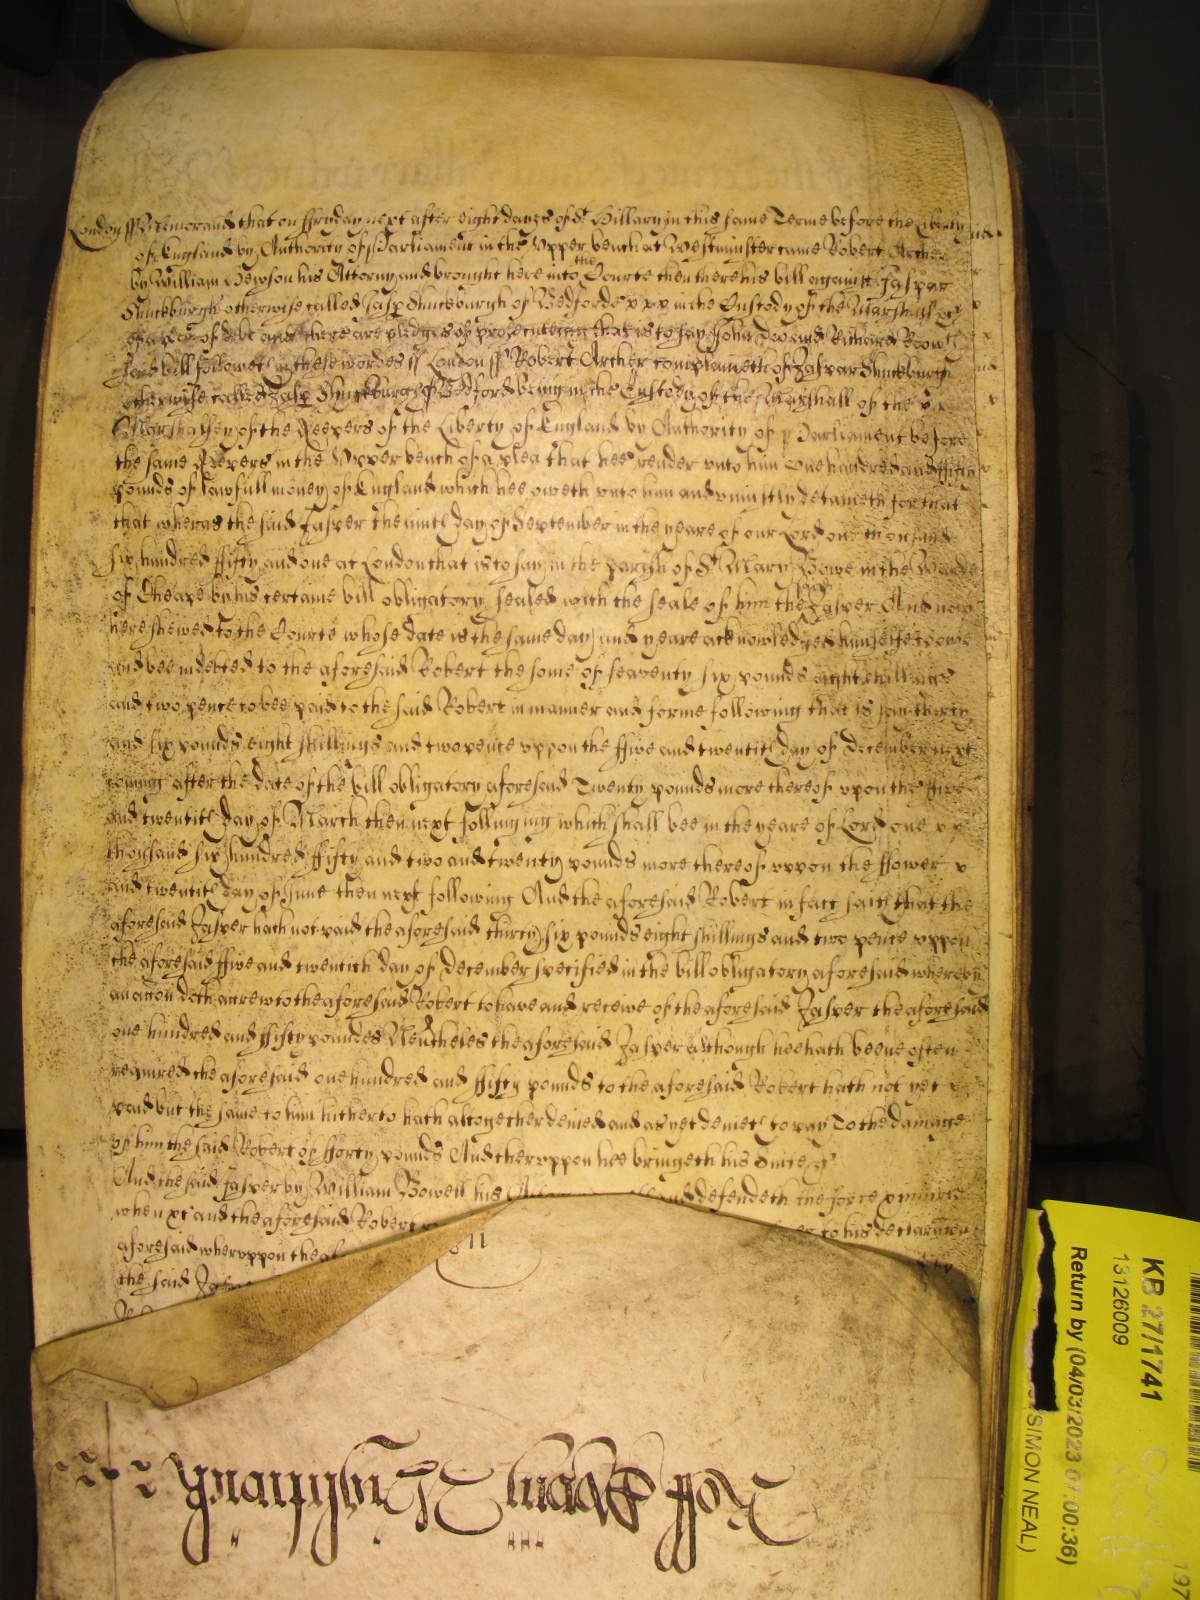 London ss Memorand that on ffryday next after eight dayes of St Hillary in this same Terme before the
of England by Authority of Parliament in the Upper bench at Westminster came Robert Archer
by William Hewson his Attorny and brought here into the Courte then there his bill against Jasper
Shuckburgh otherwise called Jasp Shuckburgh of Bedforde in the Custody of the Marshall &c
of a plea of debt and there are pledges of prosecuteing that is to say John Doe and Richard Roow
bill followeth in these wordes ss London ss Robert Archer complaineth of Jaspar Shuckburgh
otherwise called Jasp Shuckburgh of Bedford being in the Custody of the Marshall of the
Marshalsey of the Keepers of the Liberty of England by Authority of Parliament before
the same Keepers in the Upper bench of a plea that hee render unto him one hundred and ffifty
pounds of lawfull money of England which hee oweth unto him and uniustly detaineth for that
that wheras the said Jasper the day of September in the yeare of our Lord one thousand
six hundred ffifty and one at London that is to say in the parish of St Mary Bowe in the Warde
of Cheape by his certaine bill obligatory sealed with the seale of him the said Jasper And now
here shewed to the Courte whose date is the same day and yeare acknowledged himselfe to owe
and bee indebted to the aforesaid Robert the some of seaventy six pounds eight shillings
and two pence to bee paid to the said Robert in manner and forme following that is say thirty
and six pounds eight shillings and two pence uppon the ffive and twentith day of December next
coming after the date of the bill obligatory aforesaid Twenty pounds more thereof upon the ffive
and twentith day of March then next following which shall bee in the yeare of Lord one
thousand six hundred ffifty and two and twenty pounds more thereof uppon the ffower
and twentith day of June then next following And the aforesaid Robert in fact saith that the
aforesaid Jasper hath not paid the aforesaid thirty six pounds eight shillings and two pence uppon
the aforesaid ffive and twentith day of December specified in the bill obligatory aforesaid whereby
an acton doth acrew to the aforesaid Robert to have and receive of the aforesaid Jasper the aforesaid
one hundred and ffifty poundes Neutheles the aforesaid Jasper although hee hath beene often
required the aforesaid one hundred and ffifty pounds to the aforesaid Robert hath not yet
paid but the same to him hitherto hath altogether denied and as yet denieth to pay To the damage
of him the said Robert of fforty pounds And theruppon hee bringeth his suite &c
And the said Jasper by William Bowell his and defendeth the force
when &c and the aforesaid Robert to his declaraton
aforesaid wheruppon the
the said Jasper
KB 27/1741
13126009
Return by (04/03/2023 07:00:36)
SIMON NEAL)